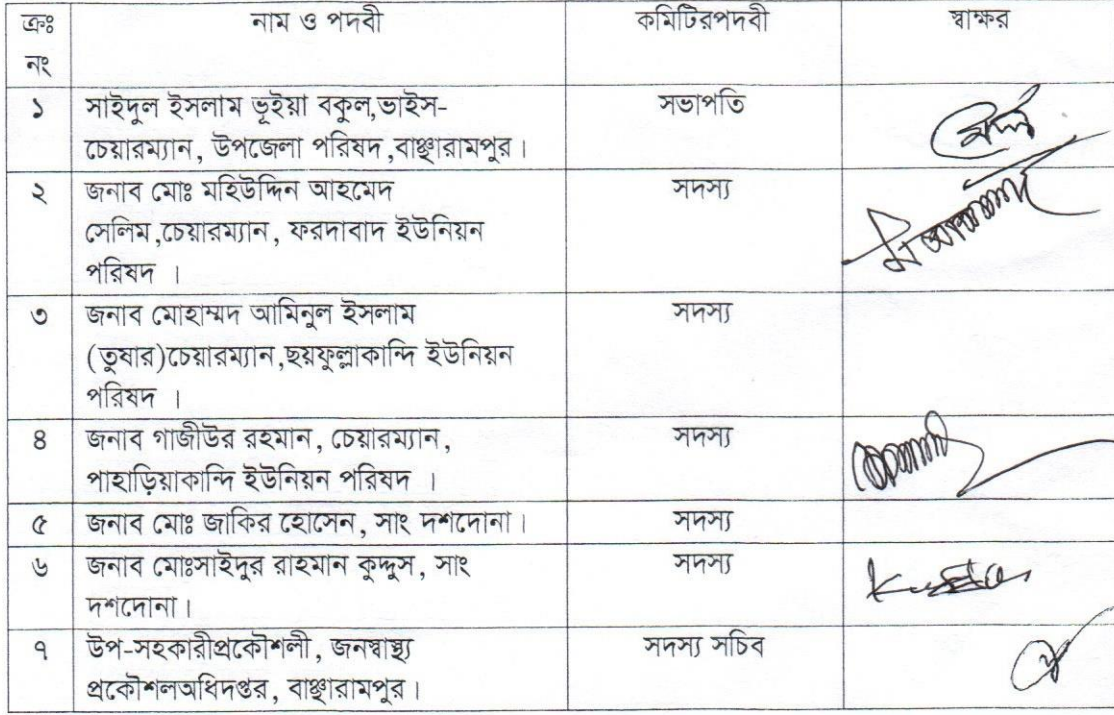 ক্রঃ নাম ও পদবী কমিটিরপদবী স্বাক্ষর
নং
১ সাইদুল ইসলাম ভূইয়া বকুল,ভাইস- সভাপতি
চেয়ারম্যান, উপজেলা পরিষদ ,বাঞ্ছারামপুর।
২ জনাব মোঃ মহিউদ্দিন আহমেদ সদস্য
সেলিম,চেয়ারম্যান, ফরদাবাদ ইউনিয়ন
পরিষদ ।
৩ জনাব মোহাম্মদ আমিনুল ইসলাম সদস্য
(তুষার)চেয়ারম্যান,ছয়ফুল্লাকান্দি ইউনিয়ন
পরিষদ ।
৪ জনাব গাজীউর রহমান, চেয়ারম্যান, সদস্য
পাহাড়িয়াকান্দি ইউনিয়ন পরিষদ ।
৫ জনাব মোঃ জাকির হোসেন, সাং দশদোনা। সদস্য
৬ জনাব মোঃসাইদুর রাহমান কুদ্দুস, সাং সদস্য
দশদোনা।
৭ উপ-সহকারীপ্রকৌশলী, জনস্বাস্থ্য সদস্য সচিব
প্রকৌশলঅধিদপ্তর, বাঞ্ছারামপুর।